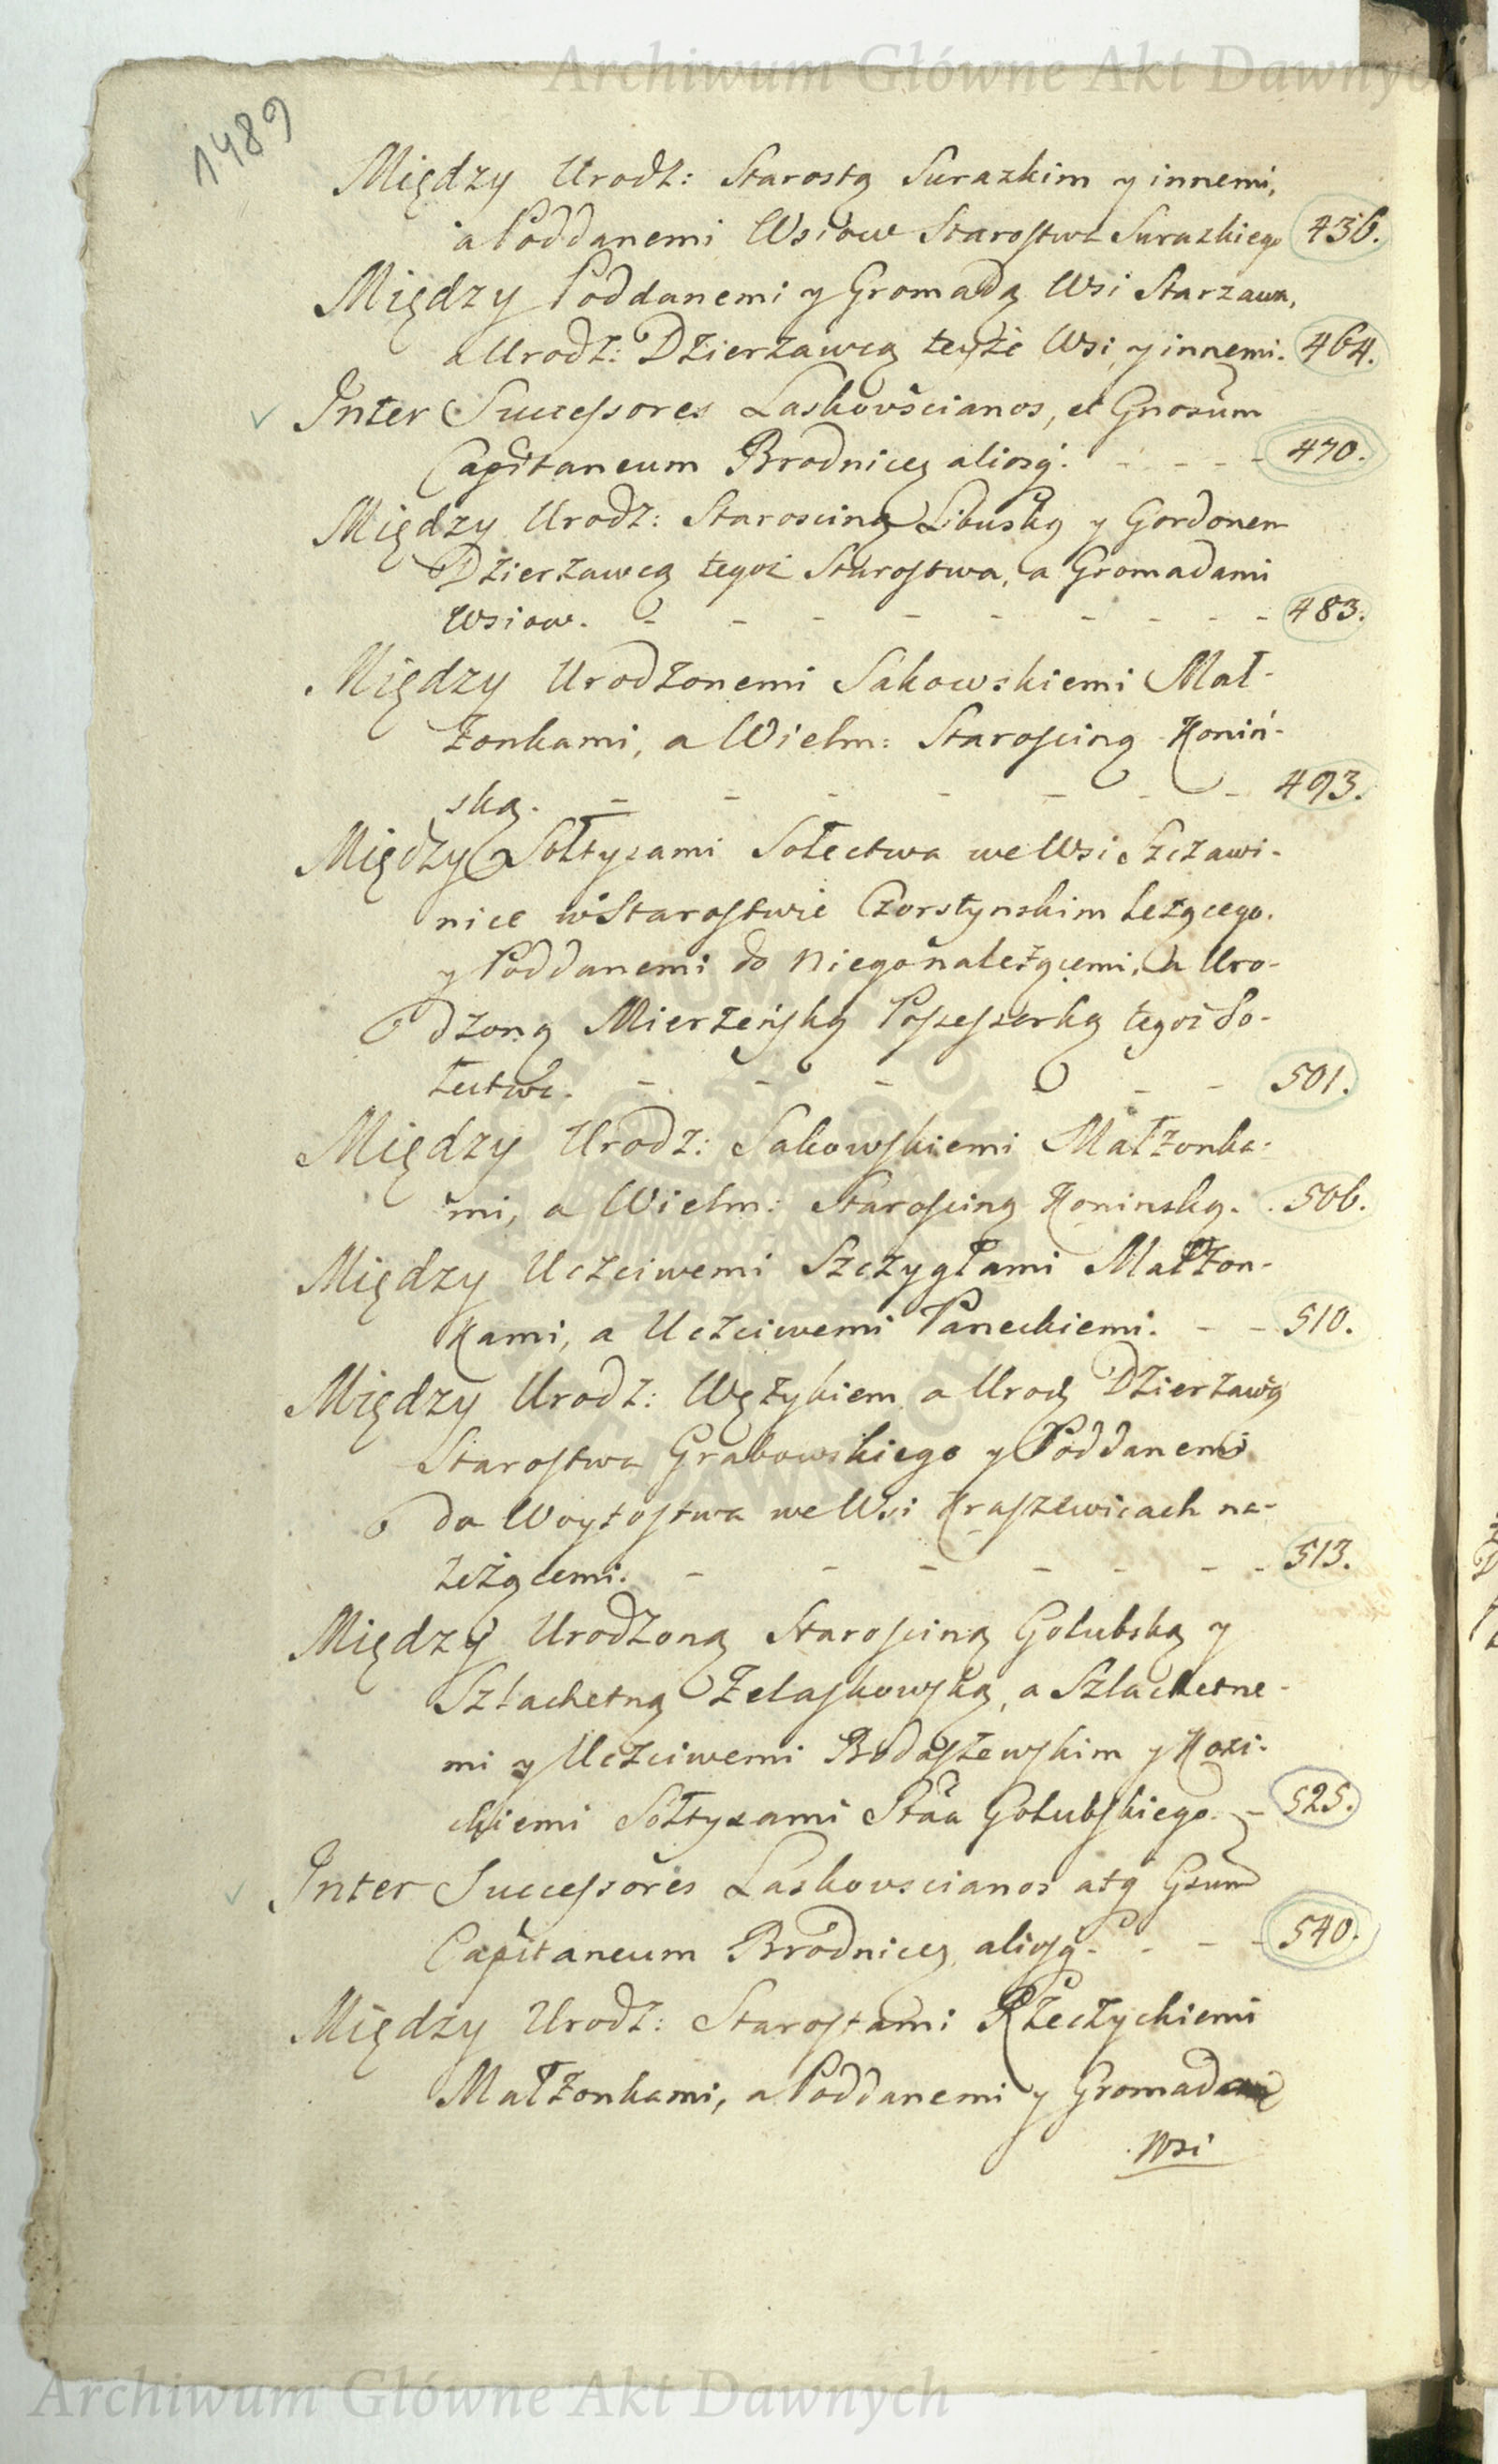 Archiwum Główne Akt Dawnych
1489
Między Urodz: Starostą Surazkim y innemi,
a Poddanemi Wsiow Starostwa Surazkiego 436.
Między Poddanemi y Gromadą Wsi Starzawa,
a Urodz: Dzierzawcą teyże Wsi y innemi. 464.
Inter Successores Laskovścianos, et Gnosum
Capitaneum Brodnicę aliosq́. - - - - 470.
Między Urodz: Starosciną Libuską y Gordonem
Dzierzawcą tegoż Starostwa, a Gromadami
Wsiow. - - - - - - - - 483.
Między Urodzonemi Sakowskiemi Mał-
żonkami, a Wielm: Starosciną Koniń-
ską. - - - - - - - 493.
Między Sołtysami Sołectwa we Wsi Szczawi-
nice w Starostwie Czorstynskim leżącego,
y Poddanemi do niego należącemi, a Uro-
dzoną Mierzeńską Possessorką tegoż So-
łectwa. - - - - - - 501.
Między Urodz: Sakowskiemi Małżonka-
mi, a Wielm: Starosciną Koninską. 506.
Między Uczciwemi Szczygłami Małżon-
kami, a Uczciwemi Paneckiemi. - - 510.
Między Urodz: Wężykiem a Urodz Dzierzawcą
Starostwa Grabowskiego y Poddanemi
do Woytostwa we Wsi Kraszewicach na-
leżącemi. - - - - - - - 513.
Między Urodzoną Starosciną Golubską y
Szlachetną Żelaskowską, a Szlachetne-
mi y Uczciwemi Bodaszewskim y Kozi-
ckiemi Sołtysami Stãa Golubskiego. - 525.
Inter Successores Laskovscianos atq Gsum
Capitaneum Brodnicę, aliosq. - - - 540.
Między Urodz: Starostami Rzeczyckiemi
Małżonkami, a Poddanemi y Gromadami
Wsi
ARCHIWUM GŁÓWNE AKT DAWNYCH
Archiwum Główne Akt Dawnych